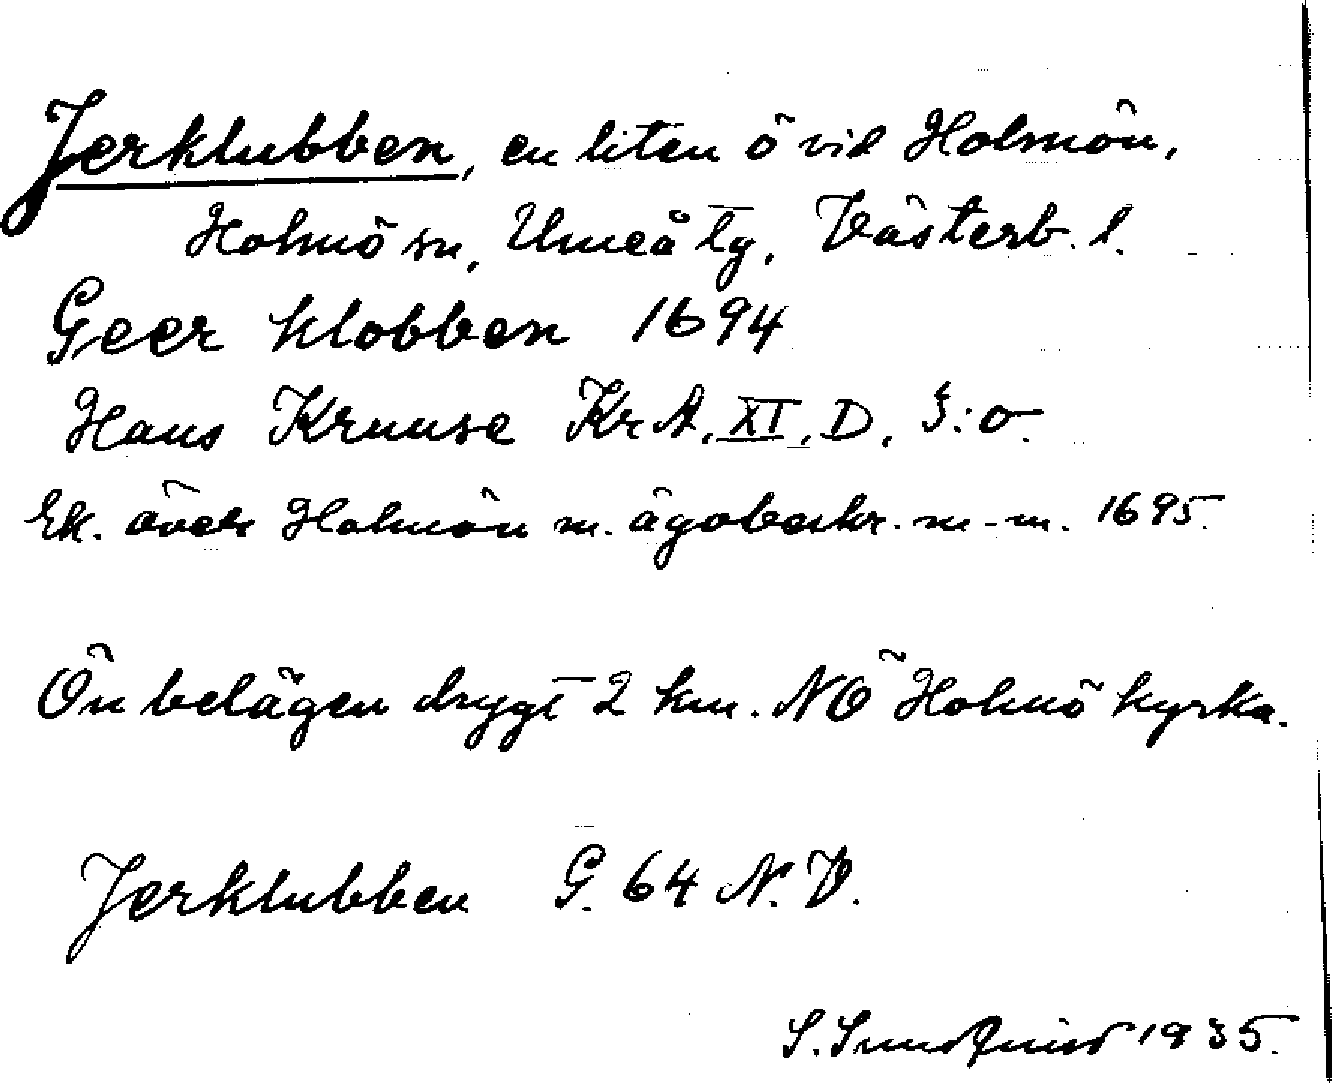 Jerklubben, en liten ö vid Holmön,
Holmö sn, Umeå tg, Västerb. l.
Geer klobben 1694
Hans Kruuse KrA, XI, D, 3:0.
Ek. över Holmön m. ägobeskr. m. m. 1695.
Ön belägen drygt 2 km. NÖ Holmö kyrka.
Jerklubben G. 64 N. V.
S. Sundquist 1935.